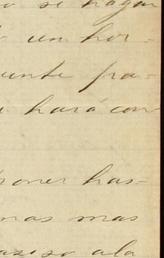 o se hagan
un hor-
uente fra-
hará con
poner has-
mas mas
a la